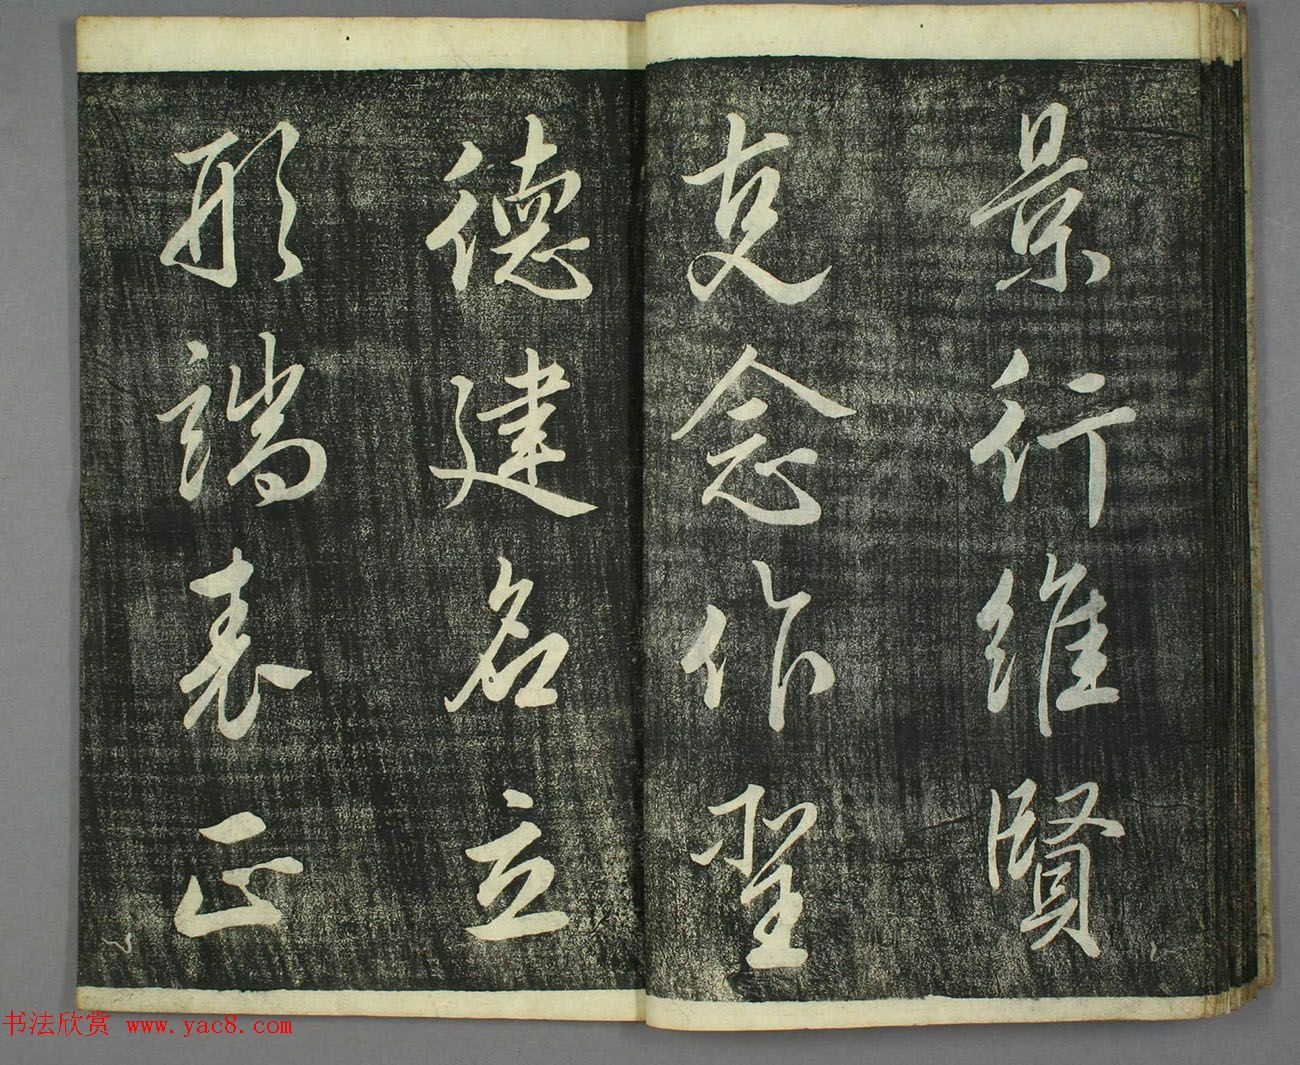 景行維賢
克念作聖
德建名立
形端表正
书法欣赏 www.yac8.com